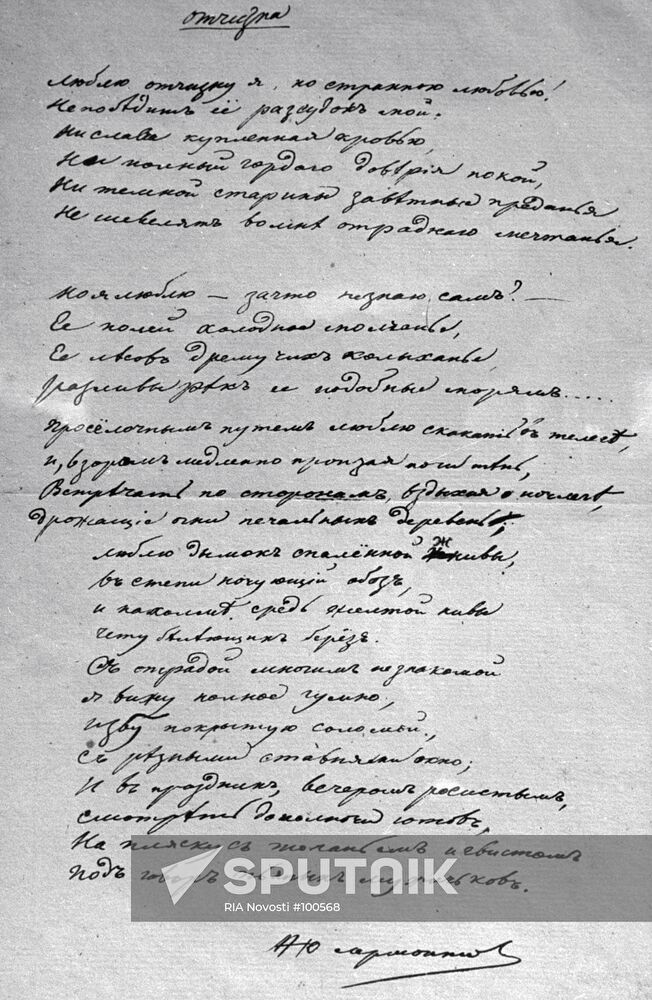 Отчизна
Люблю отчизну я, но странною любовью!
Непобѣдитъ её разсудокъ мой.
Ни слава купленная кровью,
Ни полный гордаго довѣрія покой,
Ни темной старины завѣтные преданья
Не шевелятъ во мнѣ отраднаго мечтанья.
Но я люблю — за что незнаю самъ? —
Ее полей холодное молчанье,
Ее лѣсовъ дремучихъ колыханье,
Разливы рѣкъ ее подобные морямъ.....
Просёлочнымъ путемъ люблю скакать въ телегѣ,
И, взоромъ медленно пронзая ночи тѣнь,
Встрѣчать по сторонамъ, вздыхая о ночлегѣ,
Дрожащіе огни печальныхъ деревень;
Люблю дымокъ спалённой жнивы,
Въ степи ночующій обозъ,
И на холмѣ средь желтой нивы
Чету бѣлѣющихъ берёзъ.
Съ отрадой многимъ незнакомой
Я вижу полное гумно,
Избу покрытую соломой,
Съ рѣзными ставнями окно;
И въ праздникъ, вечеромъ росистымъ,
Смотрѣть до полночи готовъ,
На пляску съ топаньемъ и свистомъ
Подъ говоръ пьяныхъ мужичковъ.
М Ю Лермонтов
SPUTNIK
RIA Novosti #100568